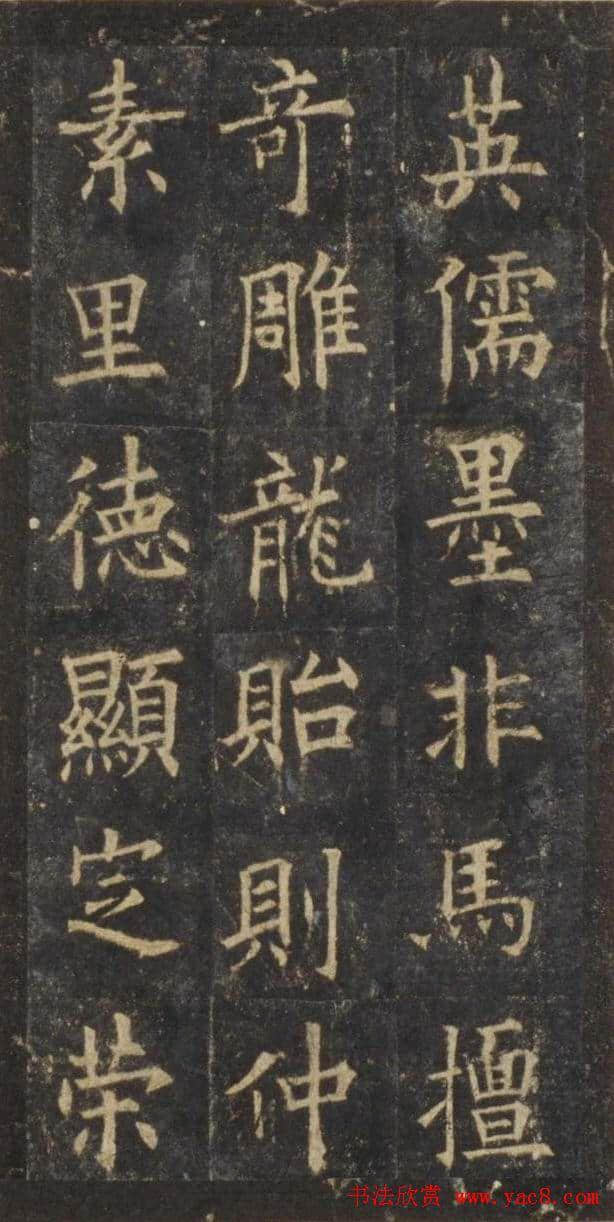 英儒墨非馬擅
奇雕龍貽則仲
素里德顯定荣
书法欣赏 www.yac8.com